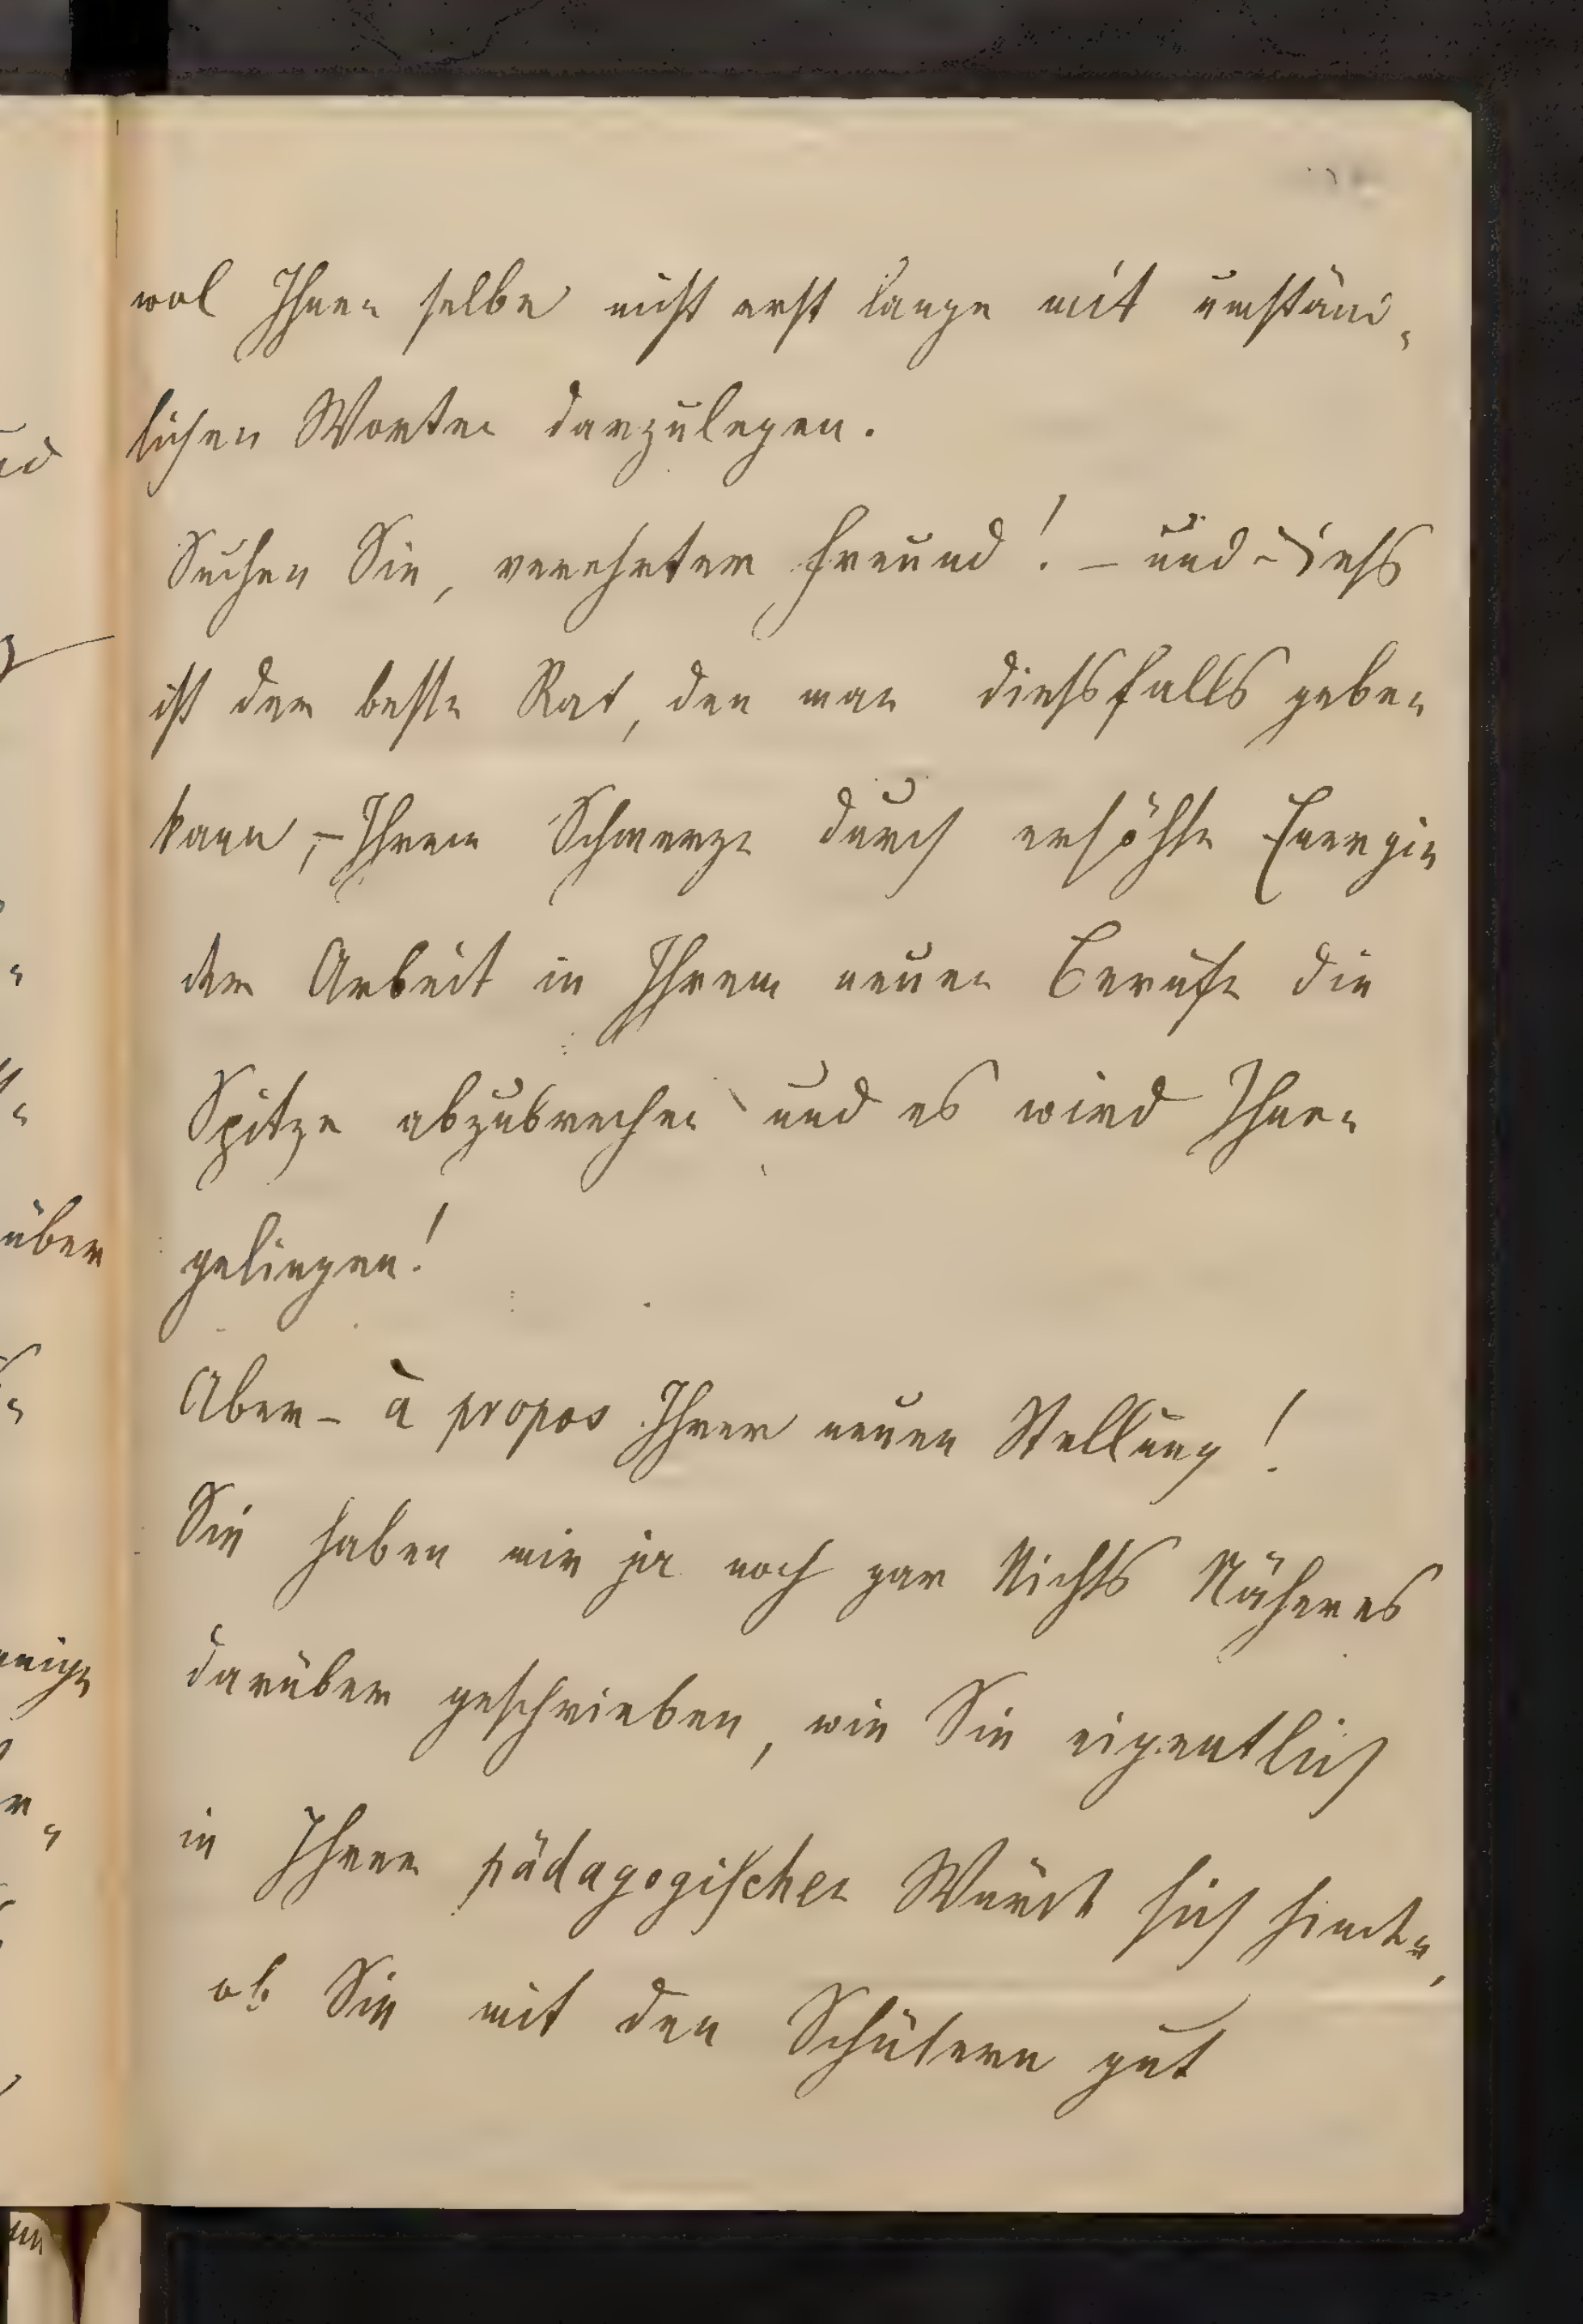 wol Ihnen selbe nicht erst lange mit umständ-
lichen Worten darzulegen.
Suchen Sie, verehrter Freund! – und diess
ist der beste Rat, den man diessfalls geben
kann, – Ihrem Schmerze durch erhöhte Energie
der Arbeit in Ihrem neuen Berufe die
Spitze abzubrechen und es wird Ihnen
gelingen!
Aber – à propos Ihrer neuen Stellung!
Sie haben mir ja noch gar Nichts Näheres
darüber geschrieben, wie Sie eigentlich
in Ihrer pädagogischen Würde sich finden,
ob Sie mit den Schülern gut
über